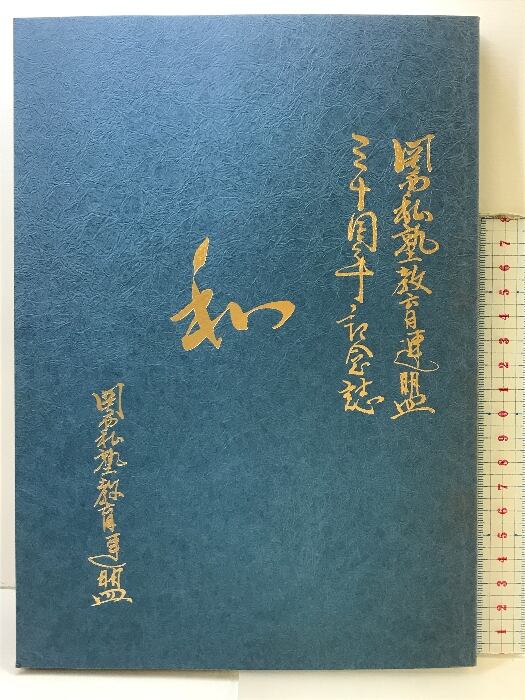 関西私塾教育連盟
三十周年記念誌
和
関西私塾教育連盟
1 2 3 4 5 6 7 8 9 0 1 2 3 4 5 6 7 8